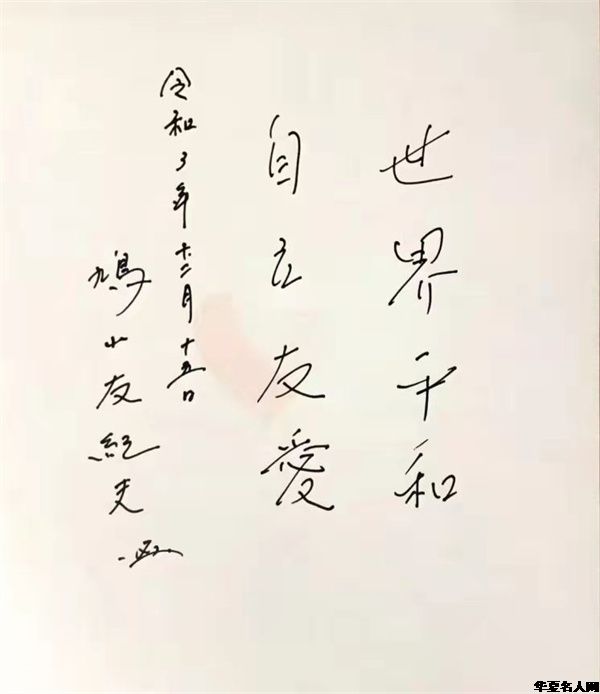 世界平和
自立友愛
令和3年十二月十五日
鳩山友紀夫
华夏名人网